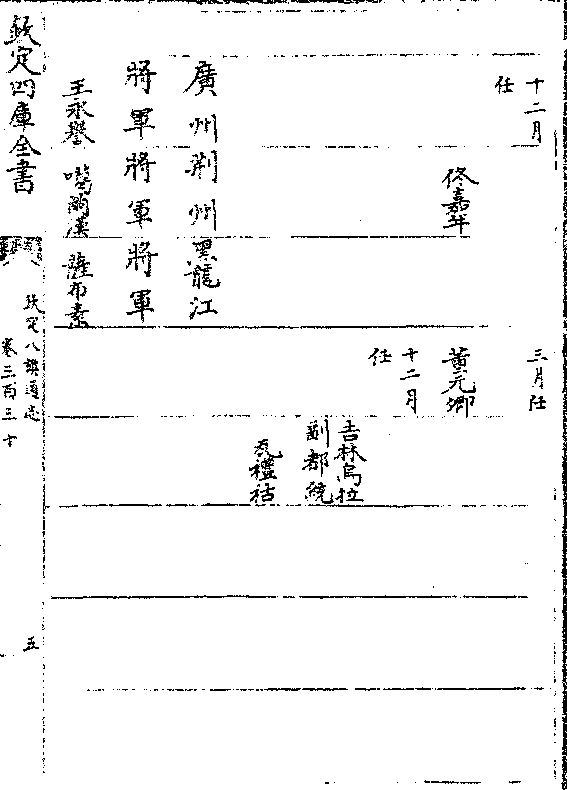 十二月
任
廣州
將軍
王永譽
佟嘉年
荆州
將軍
噶爾漢
黑龍江
將軍
薩布素
三月任
董元卿
十二月
任
吉林烏拉
副都統
瓦禮祜
欽定四庫全書
欽定八旗通志
卷三百三十
五